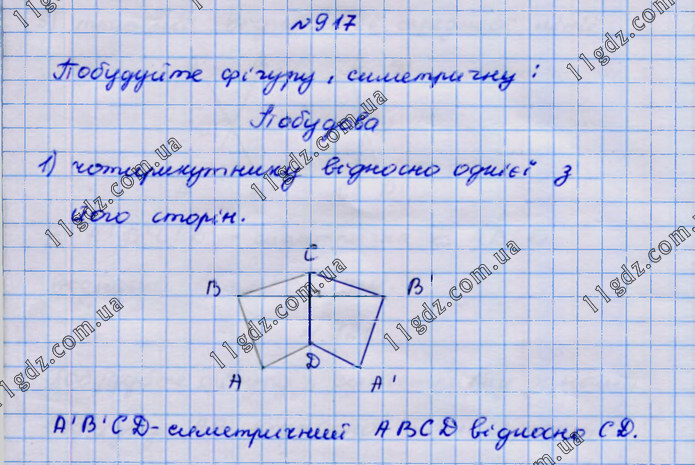 №917
Побудуйте фігуру, симетричну:
Побудова
1) чотирикутнику відносно однієї з
його сторін.
C
B B'
D
A A'
A'B'CD-симетричний ABCD відносно CD.
11gdz.com.ua
11gdz.com.ua
11gdz.com.ua
11gdz.com.ua
11gdz.com.ua
11gdz.com.ua
11gdz.com.ua
11gdz.com.ua
11gdz.com.ua